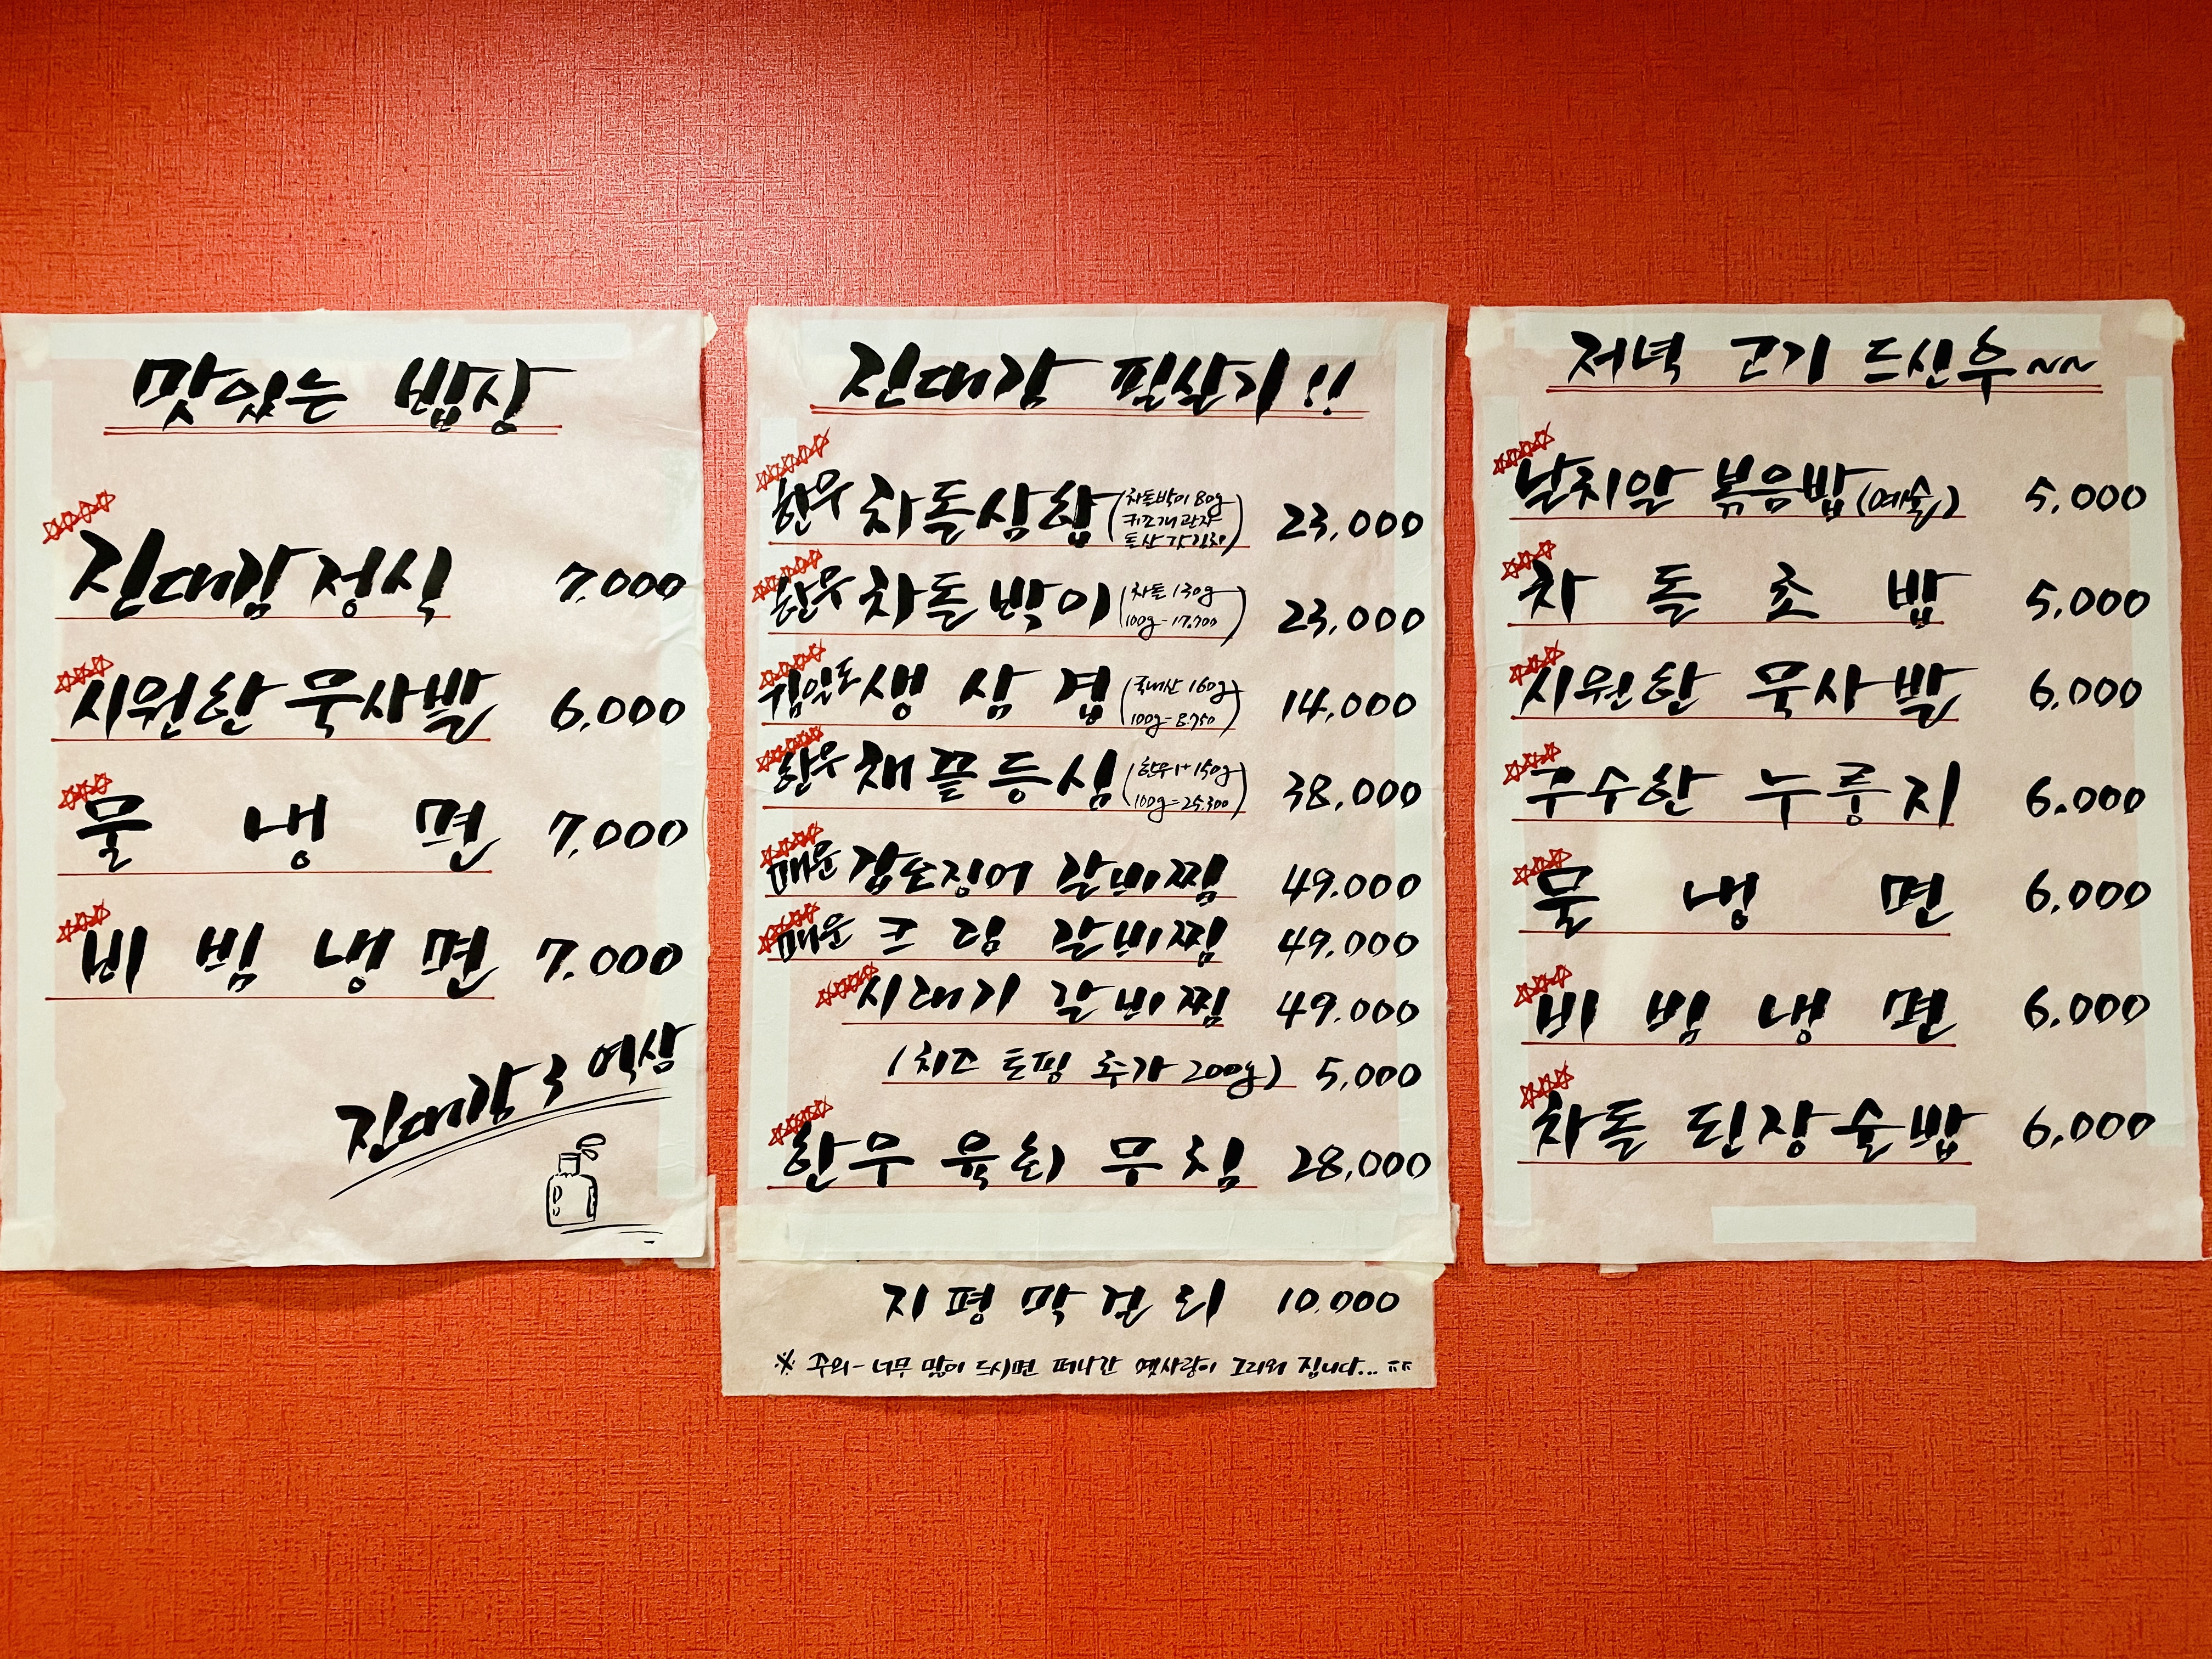 맛있는 밥상
진대감정식 7.000
시원한 묵사발 6.000
물 냉 면 7.000
비 빔 냉 면 7.000
진대감 역삼
진대감 필살기!!
한우 차돌삼합 (차돌박이 80g 키조개 관자 돌산 갓김치) 23,000
한우 차돌박이 (차돌 130g 100g-17,700) 23,000
생 삼 겹 (국내산 160g 100g-8.750) 14,000
한우 채끝등심 (한우1+ 150g 100g-25,300) 38,000
매운 갑오징어 갈비찜 49.000
매운 크 림 갈비찜 49.000
시래기 갈비찜 49.000
(치즈 토핑 추가 200g) 5,000
한우 육회 무침 28,000
지 평 막 걸 리 10.000
※ 주의- 너무 많이 드시면 떠나간 옛사랑이 그리워 집니다...
저녁 고기 드신후~~
날치알 볶음밥(예술) 5,000
차 돌 초 밥 5,000
시원한 묵사발 6,000
구수한 누룽지 6.000
물 냉 면 6.000
비 빔 냉 면 6.000
차돌 된장술밥 6,000